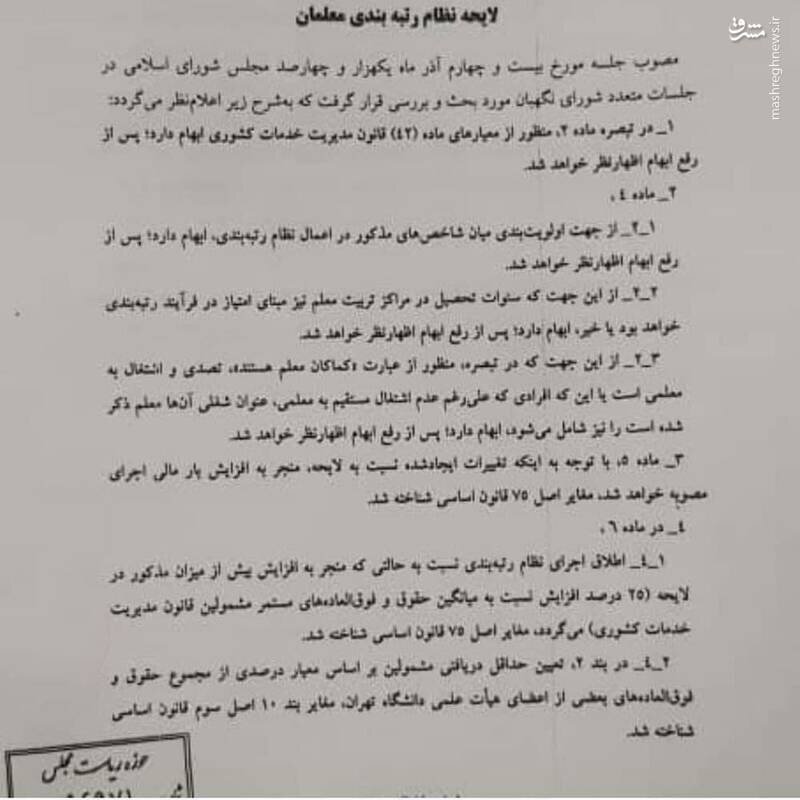 لایحه نظام رتبه بندی معلمان
مشرق
mashreghnews.ir
مصوب جلسه مورخ بیست و چهارم آذر ماه یکهزار و چهارصد مجلس شورای اسلامی در
جلسات متعدد شورای نگهبان مورد بحث و بررسی قرار گرفت که به‌شرح زیر اعلام‌نظر می‌گردد:
۱_ در تبصره ماده ۲، منظور از معیارهای ماده (۴۲) قانون مدیریت خدمات کشوری ابهام دارد؛ پس از
رفع ابهام اظهارنظر خواهد شد.
۲_ ماده ٤ ،
۲_۱_ از جهت اولویت‌بندی میان شاخص‌های مذکور در اعمال نظام رتبه‌بندی، ابهام دارد؛ پس از
رفع ابهام اظهارنظر خواهد شد.
۲_۲_ از این جهت که سنوات تحصیل در مراکز تربیت معلم نیز مبنای امتیاز در فرآیند رتبه‌بندی
خواهد بود یا خیر، ابهام دارد؛ پس از رفع ابهام اظهارنظر خواهد شد.
۲_۳_ از این جهت که در تبصره، منظور از عبارت «کماکان معلم هستند»، تصدی و اشتغال به
معلمی است یا این که افرادی که علی‌رغم عدم اشتغال مستقیم به معلمی، عنوان شغلی آن‌ها معلم ذکر
شده است را نیز شامل می‌شود، ابهام دارد؛ پس از رفع ابهام اظهارنظر خواهد شد.
۳_ ماده ۵، با توجه به اینکه تغییرات ایجادشده نسبت به لایحه، منجر به افزایش بار مالی اجرای
مصوبه خواهد شد، مغایر اصل ۷۵ قانون اساسی شناخته شد.
٤_ در ماده ٦ ،
٤_۱_ اطلاق اجرای نظام رتبه‌بندی نسبت به حالتی که منجر به افزایش بیش از میزان مذکور در
لایحه (۲۵ درصد افزایش نسبت به میانگین حقوق و فوق‌العاده‌های مستمر مشمولین قانون مدیریت
خدمات کشوری) می‌گردد، مغایر اصل ۷۵ قانون اساسی شناخته شد.
٤_۲_ در بند ۲، تعیین حداقل دریافتی مشمولین بر اساس معیار درصدی از مجموع حقوق و
فوق‌العاده‌های بعضی از اعضای هیأت علمی دانشگاه تهران، مغایر بند ۱۰ اصل سوم قانون اساسی
شناخته شد.
حوزه ریاست مجلس